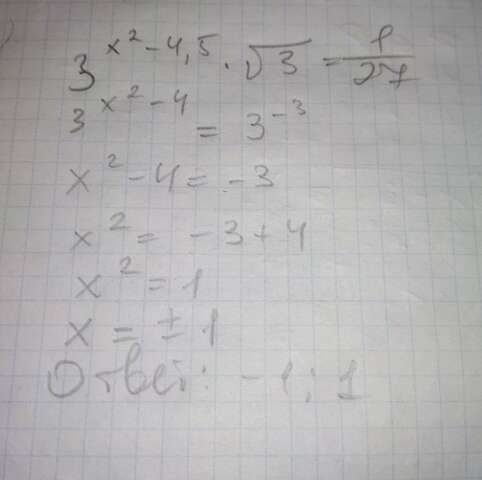 3^{x^2-4,5} · √3 = 1/27
3^{x^2-4} = 3^{-3}
x^2 - 4 = -3
x^2 = -3 + 4
x^2 = 1
x = ± 1
Ответ: -1; 1